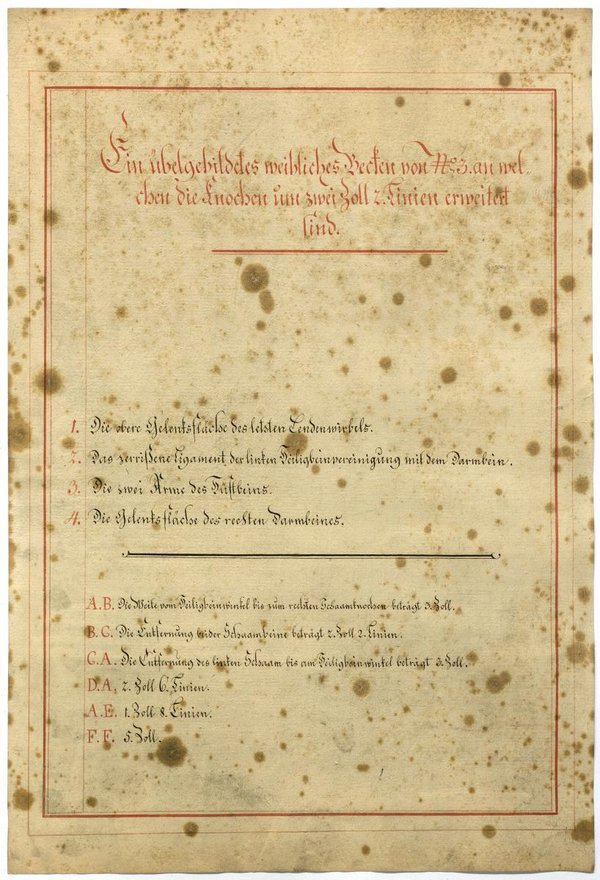 Ein übelgebildetes weibliches Becken von No. 3. an wel-
chen die Knochen um zwei Zoll 2. Linien erweitert
sind.
1. Die obere Gelenksfläche des letsten Lendenwirbels.
2. Das zerrißene Ligament der linken Heiligbeinvereinigung mit dem Darmbein.
3. Die zwei Arme des
4. Die Gelenksfläche des rechten Darmbeines.
A.B. Die Weite vom Heiligbeinwinkel bis zum rechten Schaamknochen beträgt 3. Zoll.
B.C. Die Entfernung beider Schaambeine beträgt 2. Zoll 2. Linien.
C.A. Die Entfernung des linken Schaam bis am Heiligbeinwinkel beträgt 3. Zoll.
D.A. 2. Zoll 6. Linien.
A.E. 1. Zoll 8. Linien.
F.F. 5. Zoll.